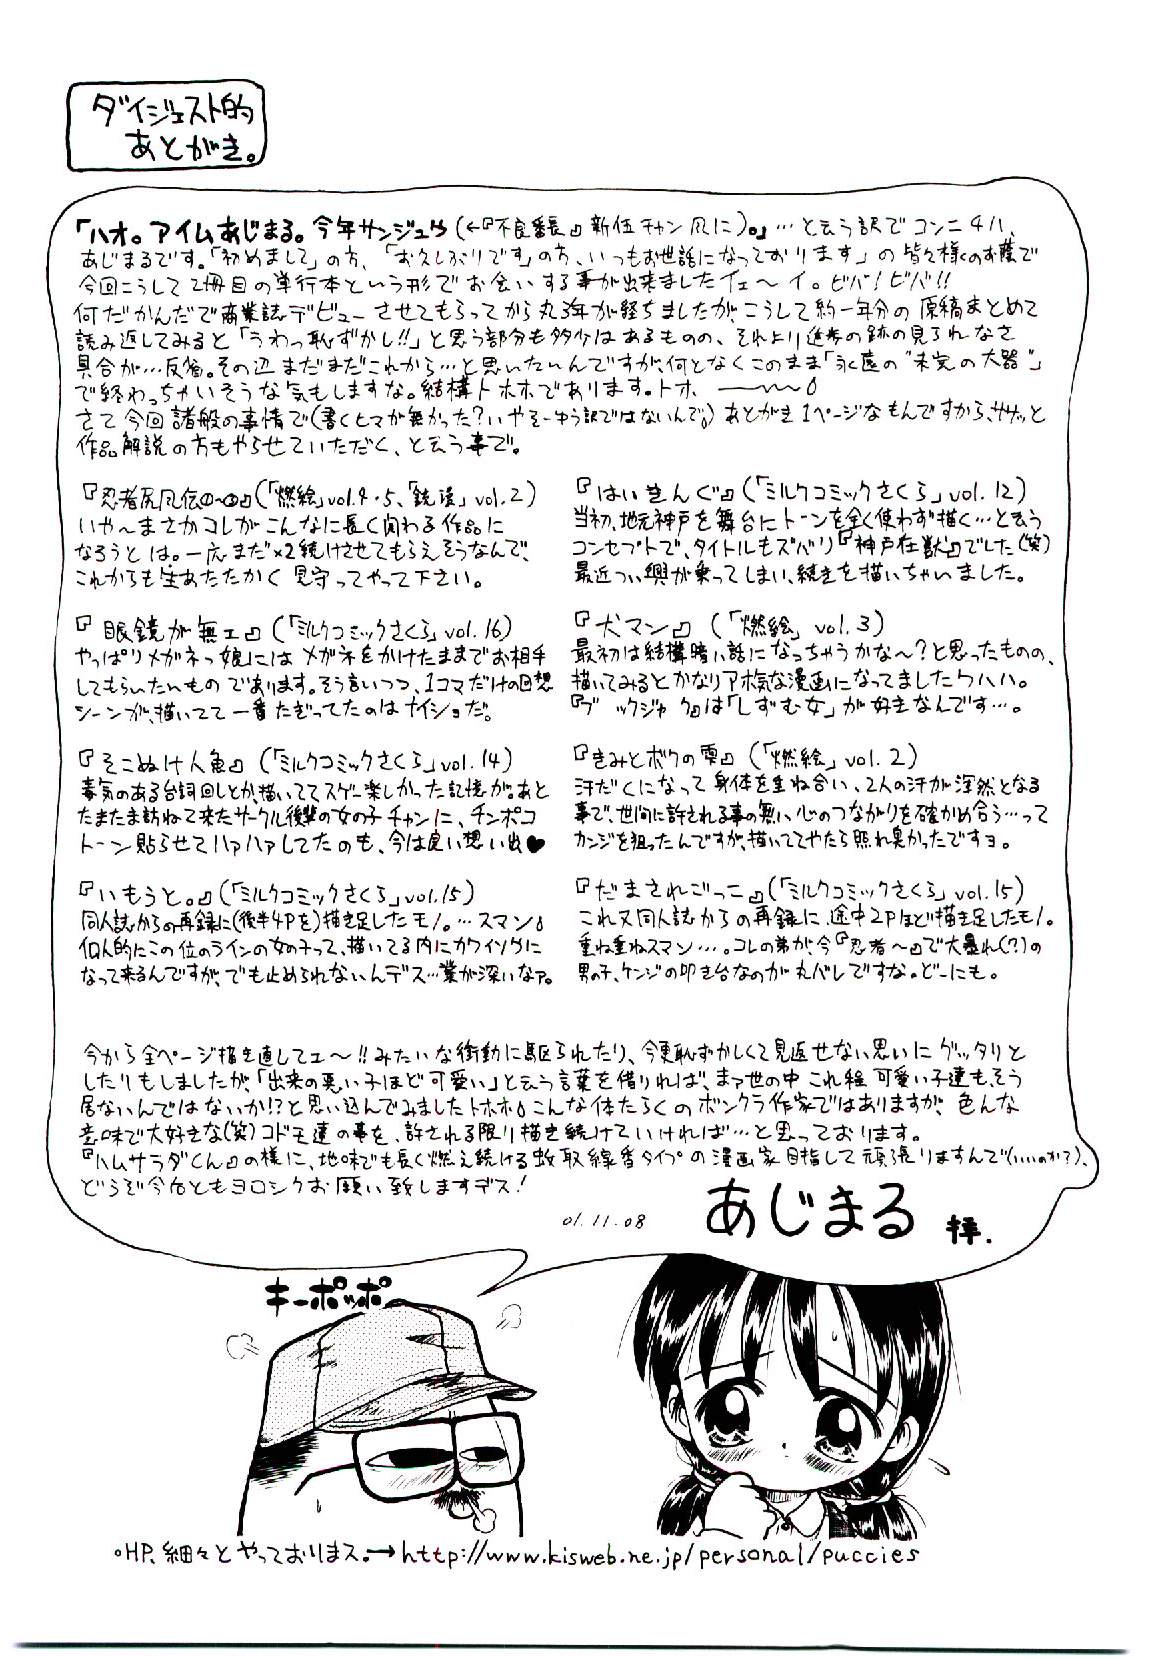 ダイジェスト的
あとがき。
「ハオ。アイムあじまる。今年サンジュウ(←『不良番長』新伍チャン風に)。」…と云う訳でコンニチハ、
あじまるです。「初めまして」の方、「お久しぶりです」の方、いつもお世話になっております」の皆々様のお蔭で
今回こうして2冊目の単行本という形でお会いする事が出来ましたイェ〜イ。ビバ!ビバ!!
何だかんだで商業誌デビューさせてもらってから丸3年が経ちましたが、こうして約一年分の原稿まとめて
読み返してみると「うわっ恥ずかし!!」と思う部分も多少はあるものの、それより進歩の跡の見られなさ
具合が…反省。その辺まだまだこれから…と思いたいんですが、何となくこのまま「永遠の"未完の大器"」
で終わっちゃいそうな気もしますな。結構トホホであります。トホ
さて今回諸般の事情で(書くヒマが無かった?いやそーゆう訳ではないんで。)あとがき1ページなもんですから、ササッと
作品解説の方もやらせていただく、と云う事で。
『忍者尻風伝①〜③』(「燃絵」vol.4・5、「銃漫」vol.2)
いや〜まさかコレがこんなに長く関わる作品に
なろうとは。一応まだ×2続けさせてもらえそうなんで、
これからも生あたたかく見守ってやって下さい。
『眼鏡が無ェ』(「ミルクコミックさくら」vol.16)
やっぱりメガネっ娘にはメガネをかけたままでお相手
してもらいたいものであります。そう言いつつ、1コマだけの回想
シーンが、描いてて一番たぎってたのはナイショだ。
『そこぬけ人魚』(「ミルクコミックさくら」vol.14)
毒気のある台詞回しとか、描いててスゲー楽しかった記憶が。あと
たまたま訪ねて来たサークル後輩の女の子チャンに、チンポコ
トーン貼らせてハァハァしてたのも、今は良い想い出♥
『いもうと。』(「ミルクコミックさくら」vol.15)
同人誌からの再録に(後半4Pを)描き足したモノ。…スマン。
個人的にこの位のラインの女の子って、描いてる内にカワイソウに
なって来るんですが、でも止められないんデス…業が深いなァ。
『はいきんぐ』(「ミルクコミックさくら」vol.12)
当初、地元神戸を舞台にトーンを全く使わず描く…と云う
コンセプトで、タイトルもズバリ『神戸在獣』でした(笑)
最近つい興が乗ってしまい、続きを描いちゃいました。
『犬マン』(「燃絵」vol.3)
最初は結構暗い話になっちゃうかな〜?と思ったものの、
描いてみるとかなりアホ気な漫画になってましたウハハ。
『ブ ックジャ ク』は「しずむ女」が好きなんです…。
『きみとボクの雫』(「燃絵」vol.2)
汗だくになって身体を重ね合い、2人の汗が渾然となる
事で、世間に許される事の無い心のつながりを確かめ合う…って
カンジを狙ったんですが、描いててやたら照れ臭かったですヨ。
『だまされごっこ』(「ミルクコミックさくら」vol.15)
これ又同人誌からの再録に、途中2Pほど描き足したモノ。
重ね重ねスマン…。コレの弟が、今『忍者〜』で大暴れ(?)の
男の子、ケンジの叩き台なのが丸バレですな。どーにも。
今から全ページ描き直してェ〜!!みたいな衝動に駆られたり、今更恥ずかしくて見返せない思いにゲッタリと
したりもしましたが、「出来の悪い子ほど可愛い」と云う言葉を借りれば、まァ世の中これ程可愛い子達も、そう
居ないんではないか!?と思い込んでみましたトホホ。こんな体たらくのボンクラ作家ではありますが、色んな
意味で大好きな(笑)コドモ達の事を、許される限り描き続けていければ…と思っております。
『ハムサラダくん』の様に、地味でも長く燃え続ける蚊取線香タイプの漫画家目指して頑張りますんで(いいのか?)、
どうぞ今后ともヨロシクお願い致しますデス!
01.11.08
あじまる 拝.
キーポッポ
。HP、細々とやっておりまス。→http://www.kisweb.ne.jp/personal/puccies